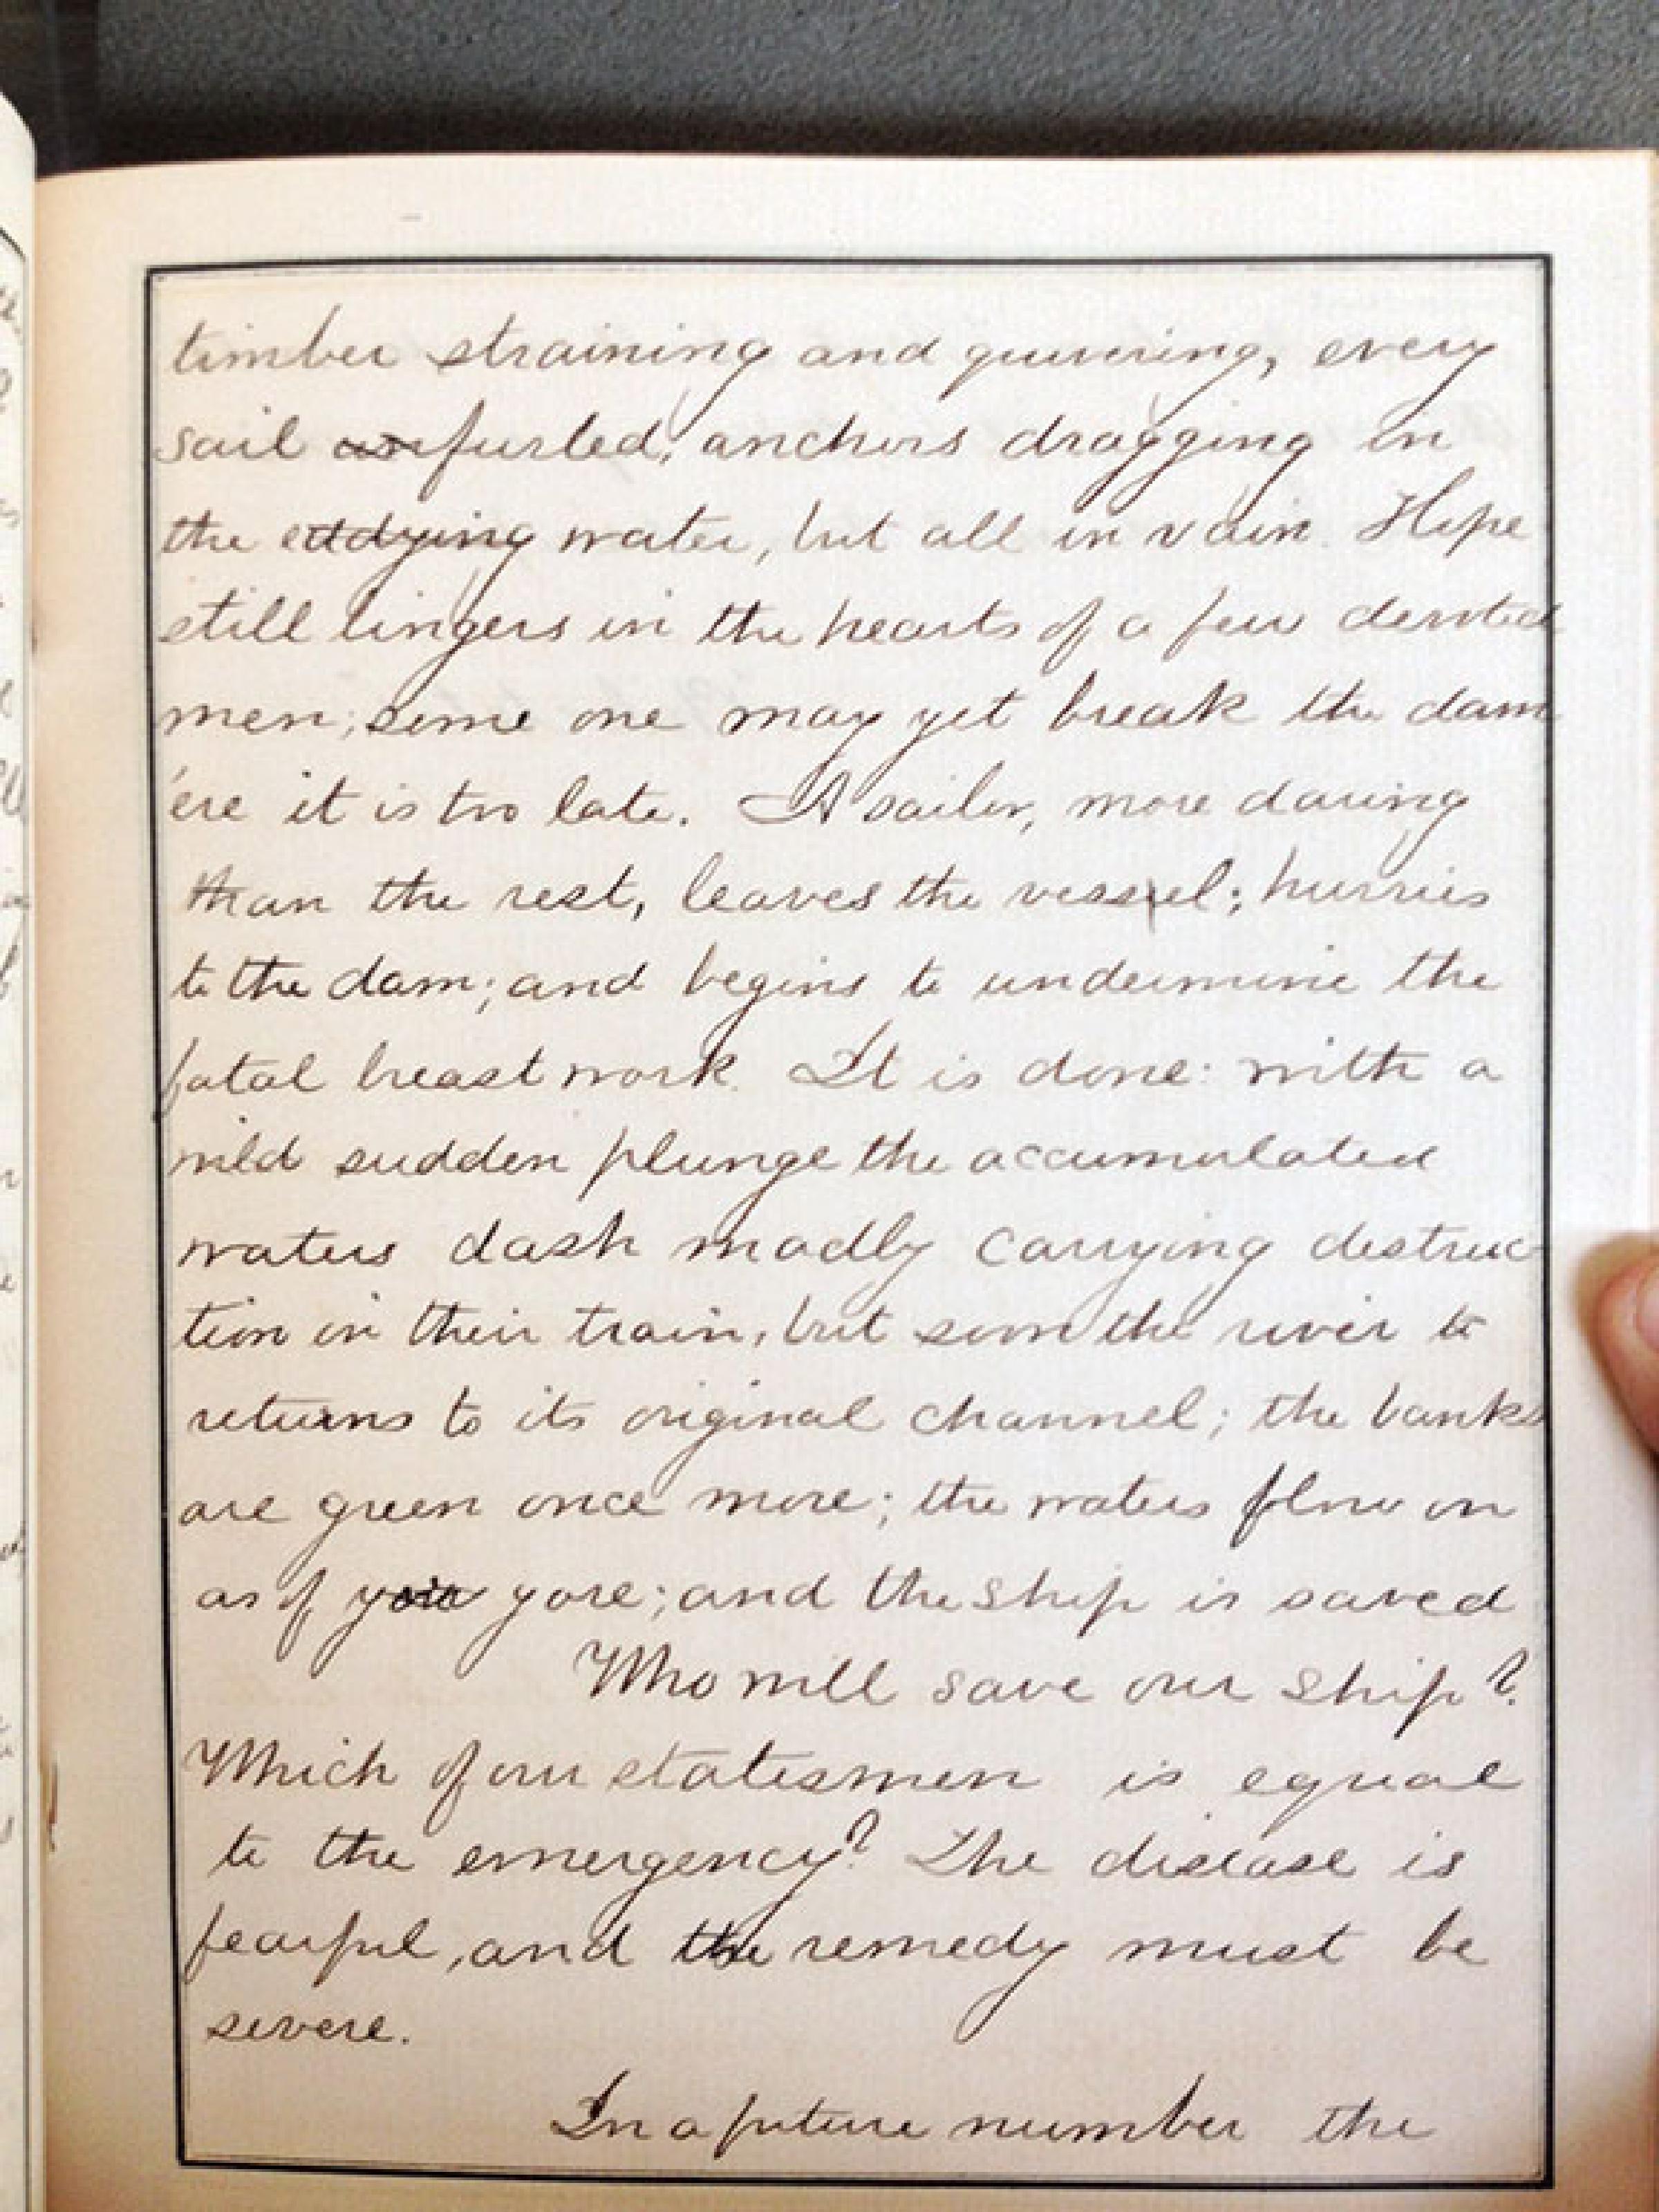 timber straining and quivering, every
sail furled, anchors dragging in
the eddying water, but all in vain. Hope
still lingers in the hearts of a few devoted
men; some one may yet break the dam
'ere it is too late. A sailor, more daring
than the rest, leaves the vessel; hurries
to the dam; and begins to undermine the
fatal breastwork. It is done: with a
wild sudden plunge the accumulated
waters dash madly carrying destruc-
tion in their train, but soon the river to
returns to its original channel; the banks
are green once more; the waters flow on
as of yore; and the ship is saved
Who will save our ship?
Which of our statesmen is equal
to the emergency? The disease is
fearful, and the remedy must be
severe.
In a future number the